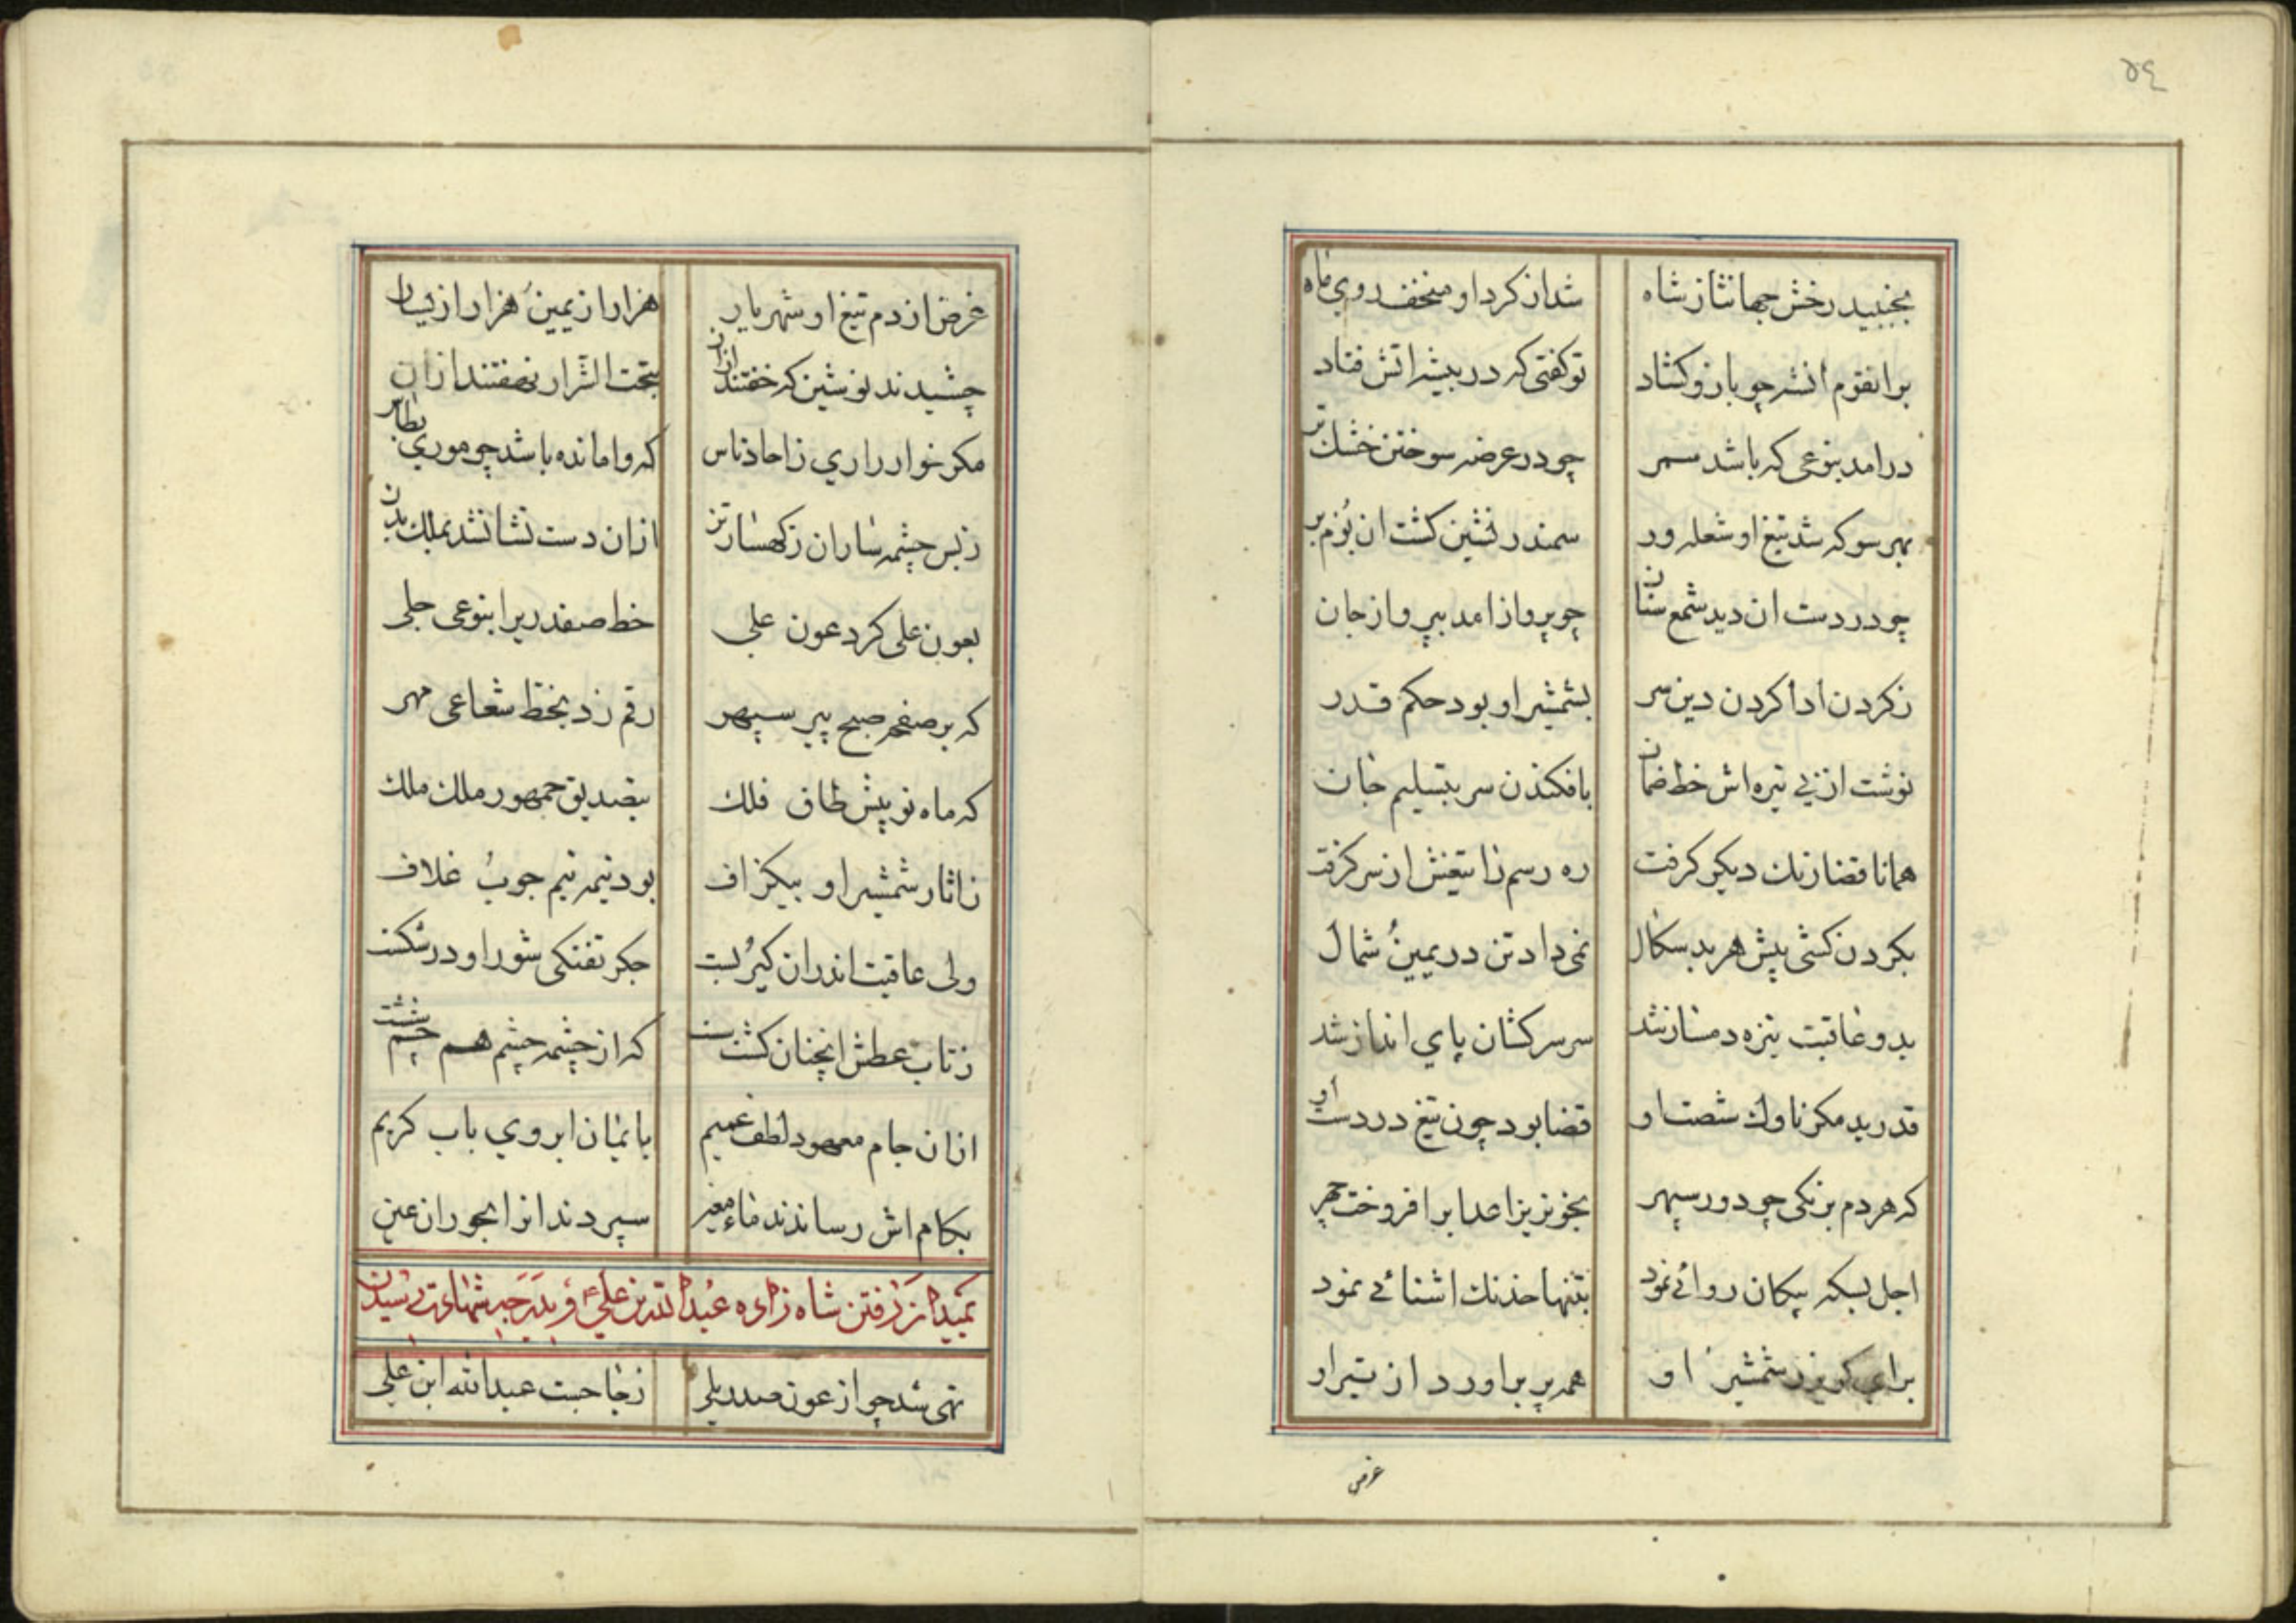 ٥٤
بجنبید رخش جهانتاز شاه شد از کرد او منخسف روی ماه
بر انقوم اتش چو بازو کشاد تو کفتی که در بیشه اتش فتاد
در امد بنوعی که باشد سمر چو در عرضه سوختن خشک تر
بهر سو که شد تیغ او شعله ور سمندر نشین کشت ان بوم بر
چو در دست ان دید شمع سنان چو پرواز امد بپرواز جان
ز کردن ادا کردن دین سر بشمشیر او بود حکم قدر
نوشت از نی تیره اش خط ضمان بافکندن سر بتسلیم جان
همانا قضا رنک دیکر کرفت ره رسم را تیغش از سر کرفت
بکردن کشی پیش هر بد سکال نمی داد تن در یمین شمال
بدو عاقبت نیزه دمساز شد سر سرکشان پای انداز شد
قدر بد مکر ناوک شصت او قضا بود چون تیغ در دست او
که هر دم برنکی چو دور سپهر بخونریز اعدا بر افروخت چهر
اجل بسکه پیکان روائی نمود بتنها خدنک اشنائی نمود
برای کریز ز شمشیر او همه پر بر اورد از تیر او
غرض
غرض از دم تیغ او شهریار هزار از یمین هزار از یسار
چشیدند نوشین که خفتند ازان بتحت الثرا رو نهفتند ازان
مکر خوار زاری زاحاد ناس که وا مانده باشد چو موری بطاس
ز بس چشمه ساران ز کهسار تن ازان دست نشانشد بملک بدن
بعون علی کرد عون علی خط صفدریرا بنوعی جلی
که بر صفحه صبح پیر سپهر رقم زد بخط شعاعی مهر
که ماه نو پیش طاق فلک بتصدیق جمهور ملک ملک
زاثار شمشیر او بیکزاف بود نیمه نیم چوب غلاف
ولی عاقبت اندران کیر بست جکر تفتکی شور او در شکست
ز تاب عطش انچنان کشت سست که از چشمه چشم هم چشم شست
ازان جام معهود لطف عمیم بایمان ابروی باب کریم
بکام اش رساندند ماء معین سپردند انرا بحوران عین
بمیدان رفتن شاه زاده عبد الله بن علی ع و بدرجه شهادت رسیدن
تهی شد چو از عون صدر یلی ز جا جست عبد الله ابن علی